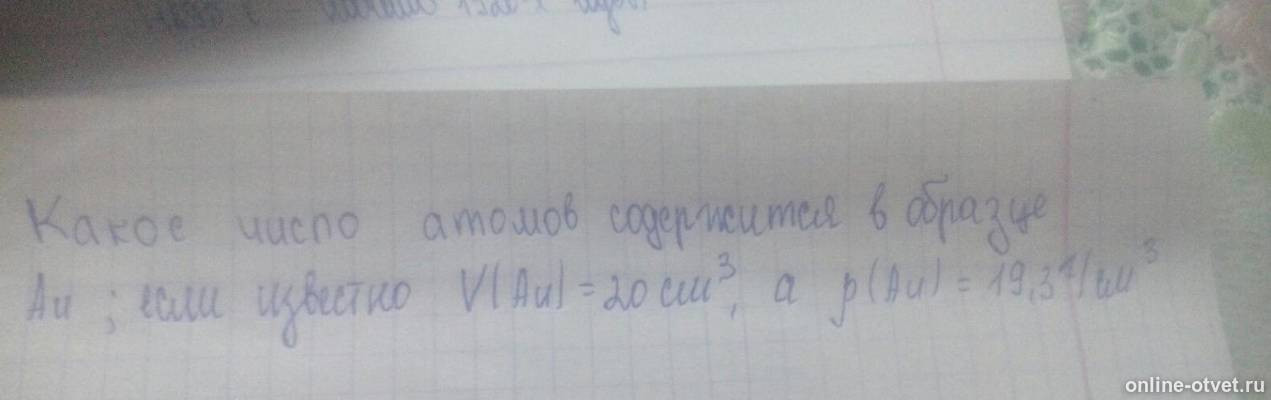 Какое число атомов содержится в образце
Au ; если известно V(Au) = 20 см³, а ρ(Au) = 19,3 г/см³
online-otvet.ru